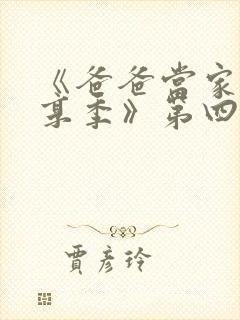 《爸爸當家
某季》第四
賈彥玲